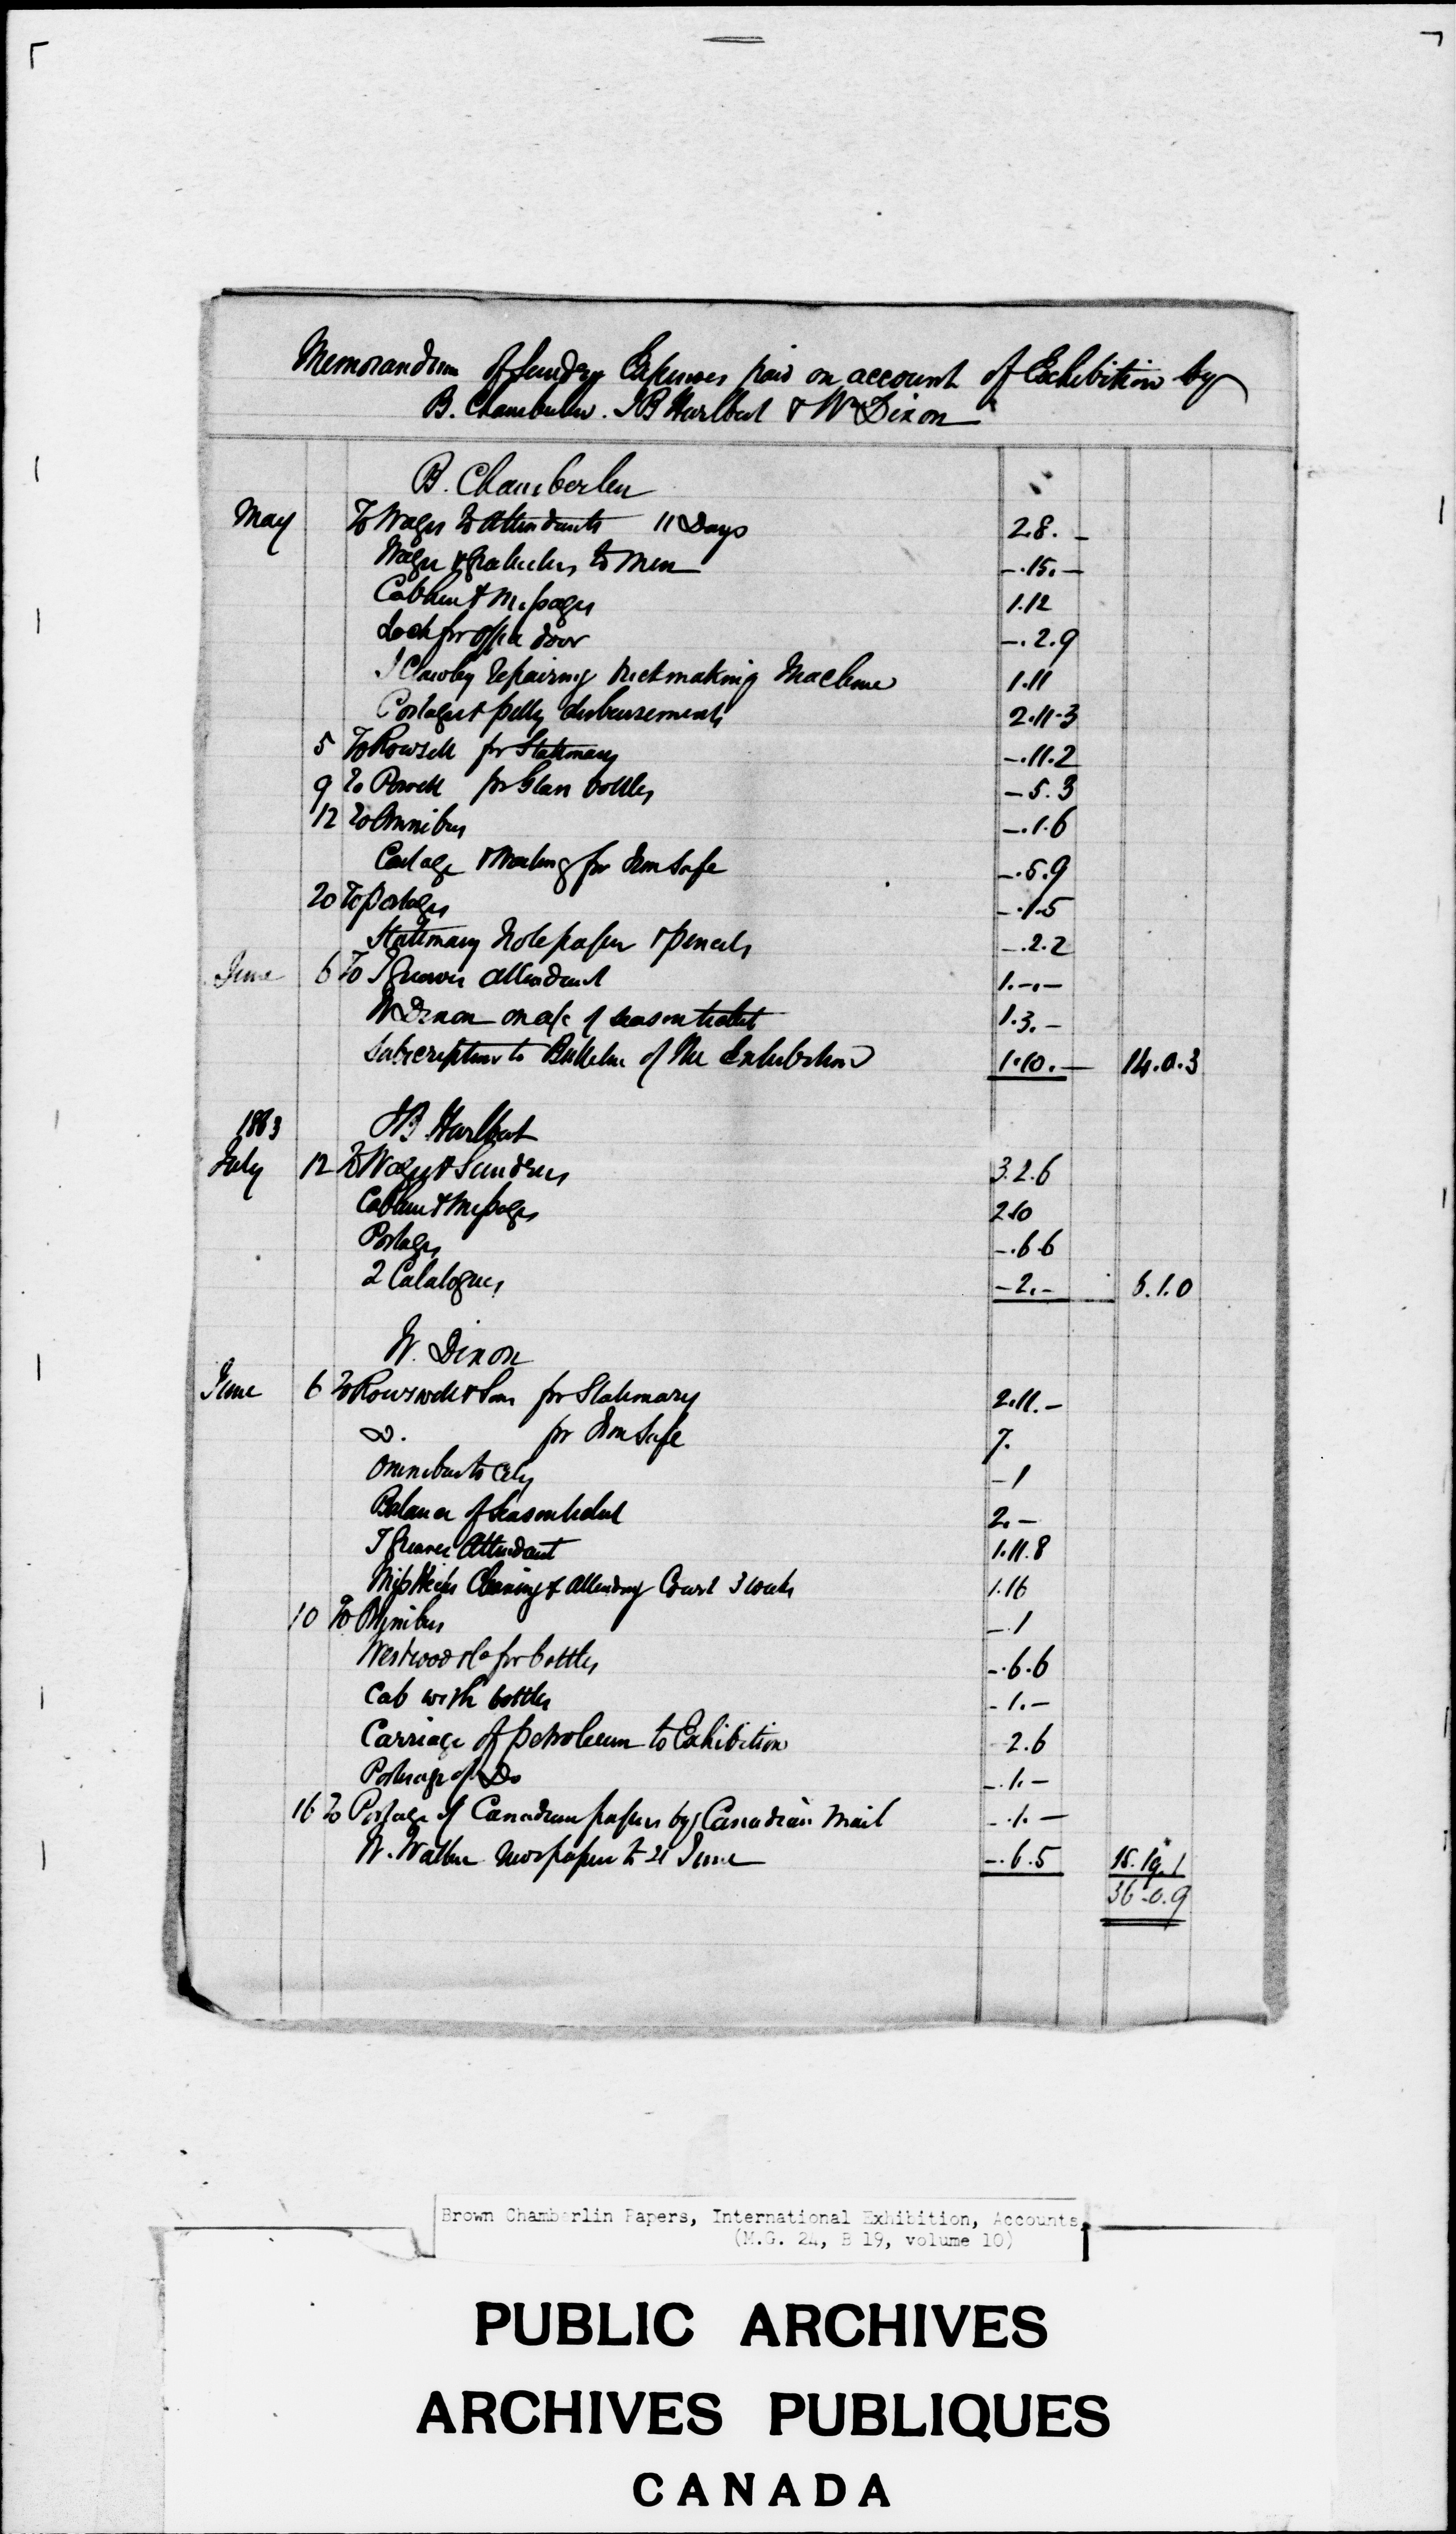 Memorandum of Sundry Expenses paid on account of Exhibition by
B. Chamberlin. J B Hurlbert & Wm Dixon
B. Chamberlin
May To Wages to Attendants 11 Days 2.8. -
Wages & Gratuities to Men -.15.-
Cabhire & Messages 1.12
Lock for office door -.2.9
J repairing brickmaking Machine 1.11
Postages & petty disbursements 2.11.3
5 To Rowsell for Stationary -.11.2
9 To Powell for Glass bottles -5.3
12 To Omnibus -.1.6
Cartage & for Iron Safe -.5.9
20 To postages -.1.5
Stationary Note paper & pencils -.2.2
June 6 To J Graves attendant 1.-.-
W Dixon on a/c of season ticket 1.3.-
Subscription to Bulletin of the Exhibition 1.10.- 14.0.3
1863 J B Hurlbert
July 12 To Wages & Sundries 3.2.6
Cabhire & Messages 2.10
Postages -.6.6
2 Catalogues -2.- 6.1.0
W. Dixon
June 6 To Rowswell & Son for Stationary 2.11.-
Do. for Iron Safe 7.
Omnibus to City -1
Balance of Season ticket 2.-
J Graves Attendant 1.11.8
Miss Cleaning & attending Court 3 weeks 1.16
10 To Omnibus -.1
Westwood & Co for bottles -.6.6
Cab with bottles -1.-
Carriage of petroleum to Exhibition 2.6
Porterage of Do -.1.-
16 To Postage of Canadian papers by Canadian Mail -.1.-
W. Walker Newspaper to 21 June -.6.5 15.19.1
36.0.9
Brown Chamberlin Papers, International Exhibition, Accounts
(M.G. 24, B 19, volume 10)
PUBLIC ARCHIVES
ARCHIVES PUBLIQUES
CANADA